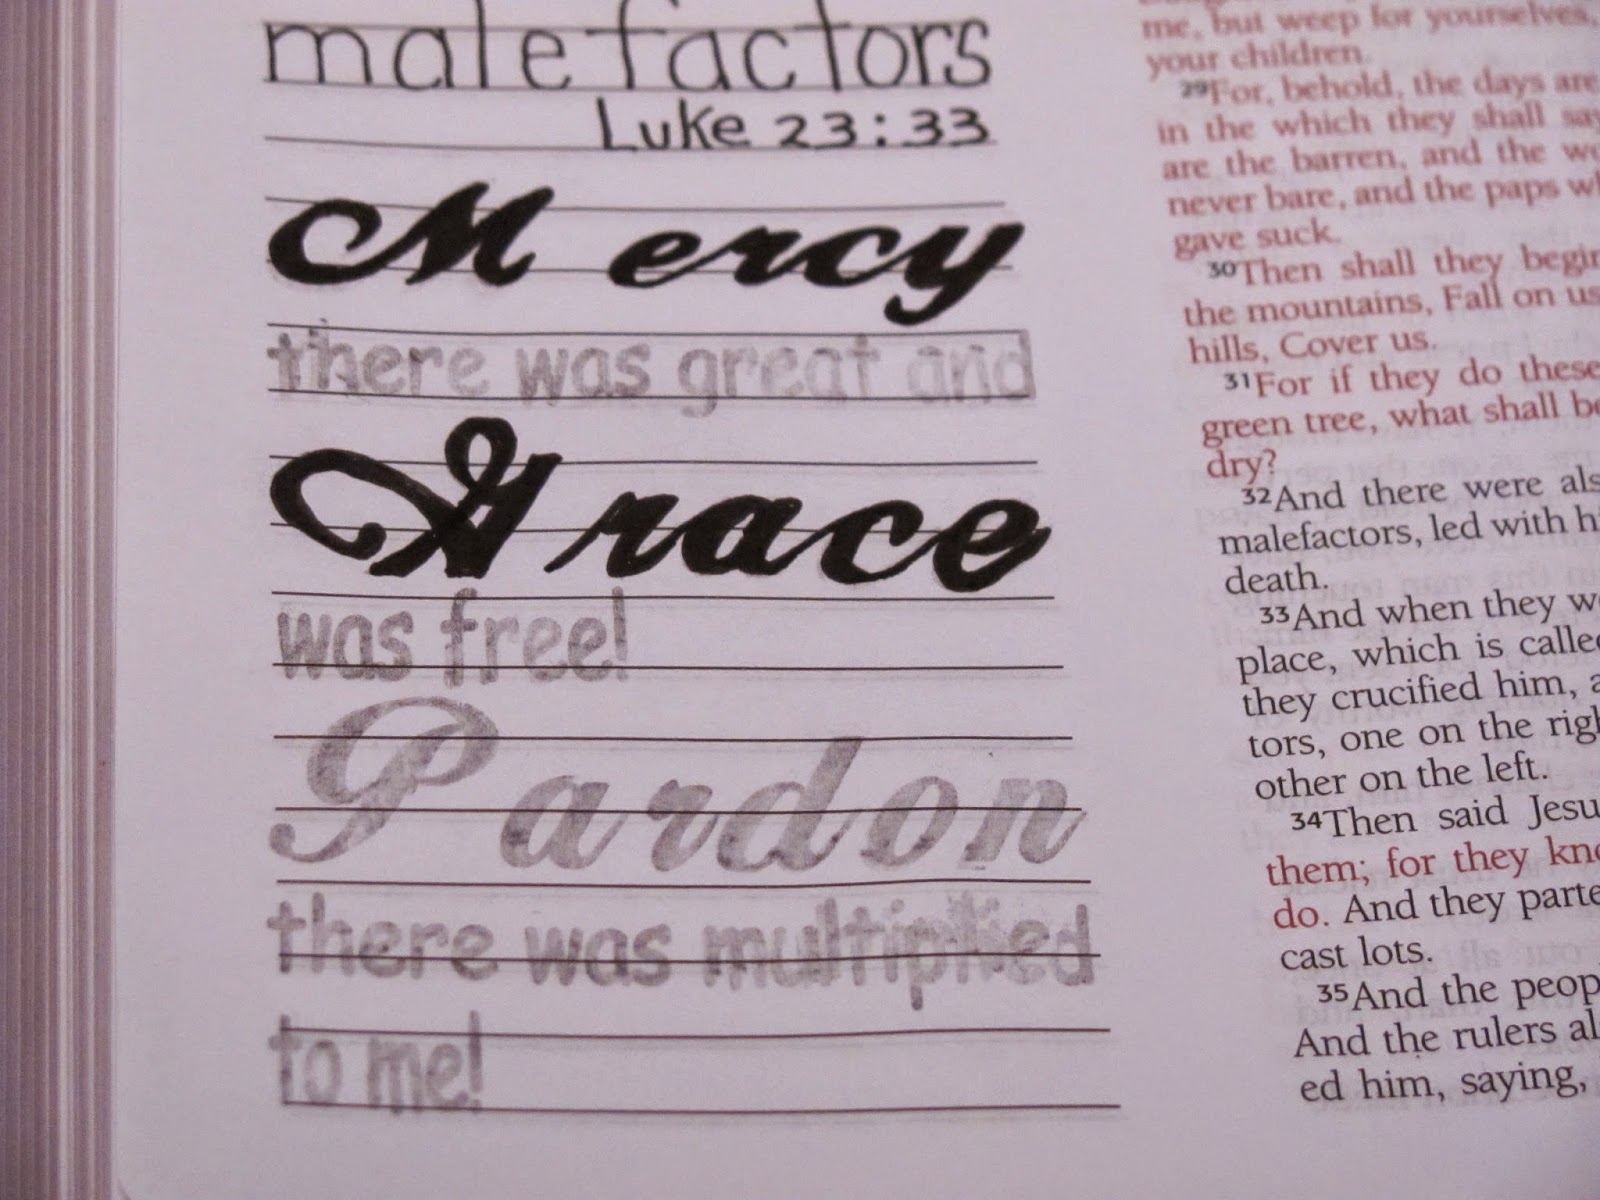 malefactors
Luke 23:33
Mercy
there was great and
Grace
was free!
Pardon
there was multiplied
to me!
me, but weep for yourselves,
your children.
29For, behold, the days are
in the which they shall say
are the barren, and the
never bare, and the paps
gave suck.
30Then shall they begin
the mountains, Fall on us
hills, Cover us.
31For if they do these
green tree, what shall be
dry?
32And there were
malefactors, led with
death.
33And when they
place, which is called
they crucified him,
tors, one on the
other on the left.
34Then said
them; for they
do. And they
cast lots.
35And the
And the rulers
ed him, saying,